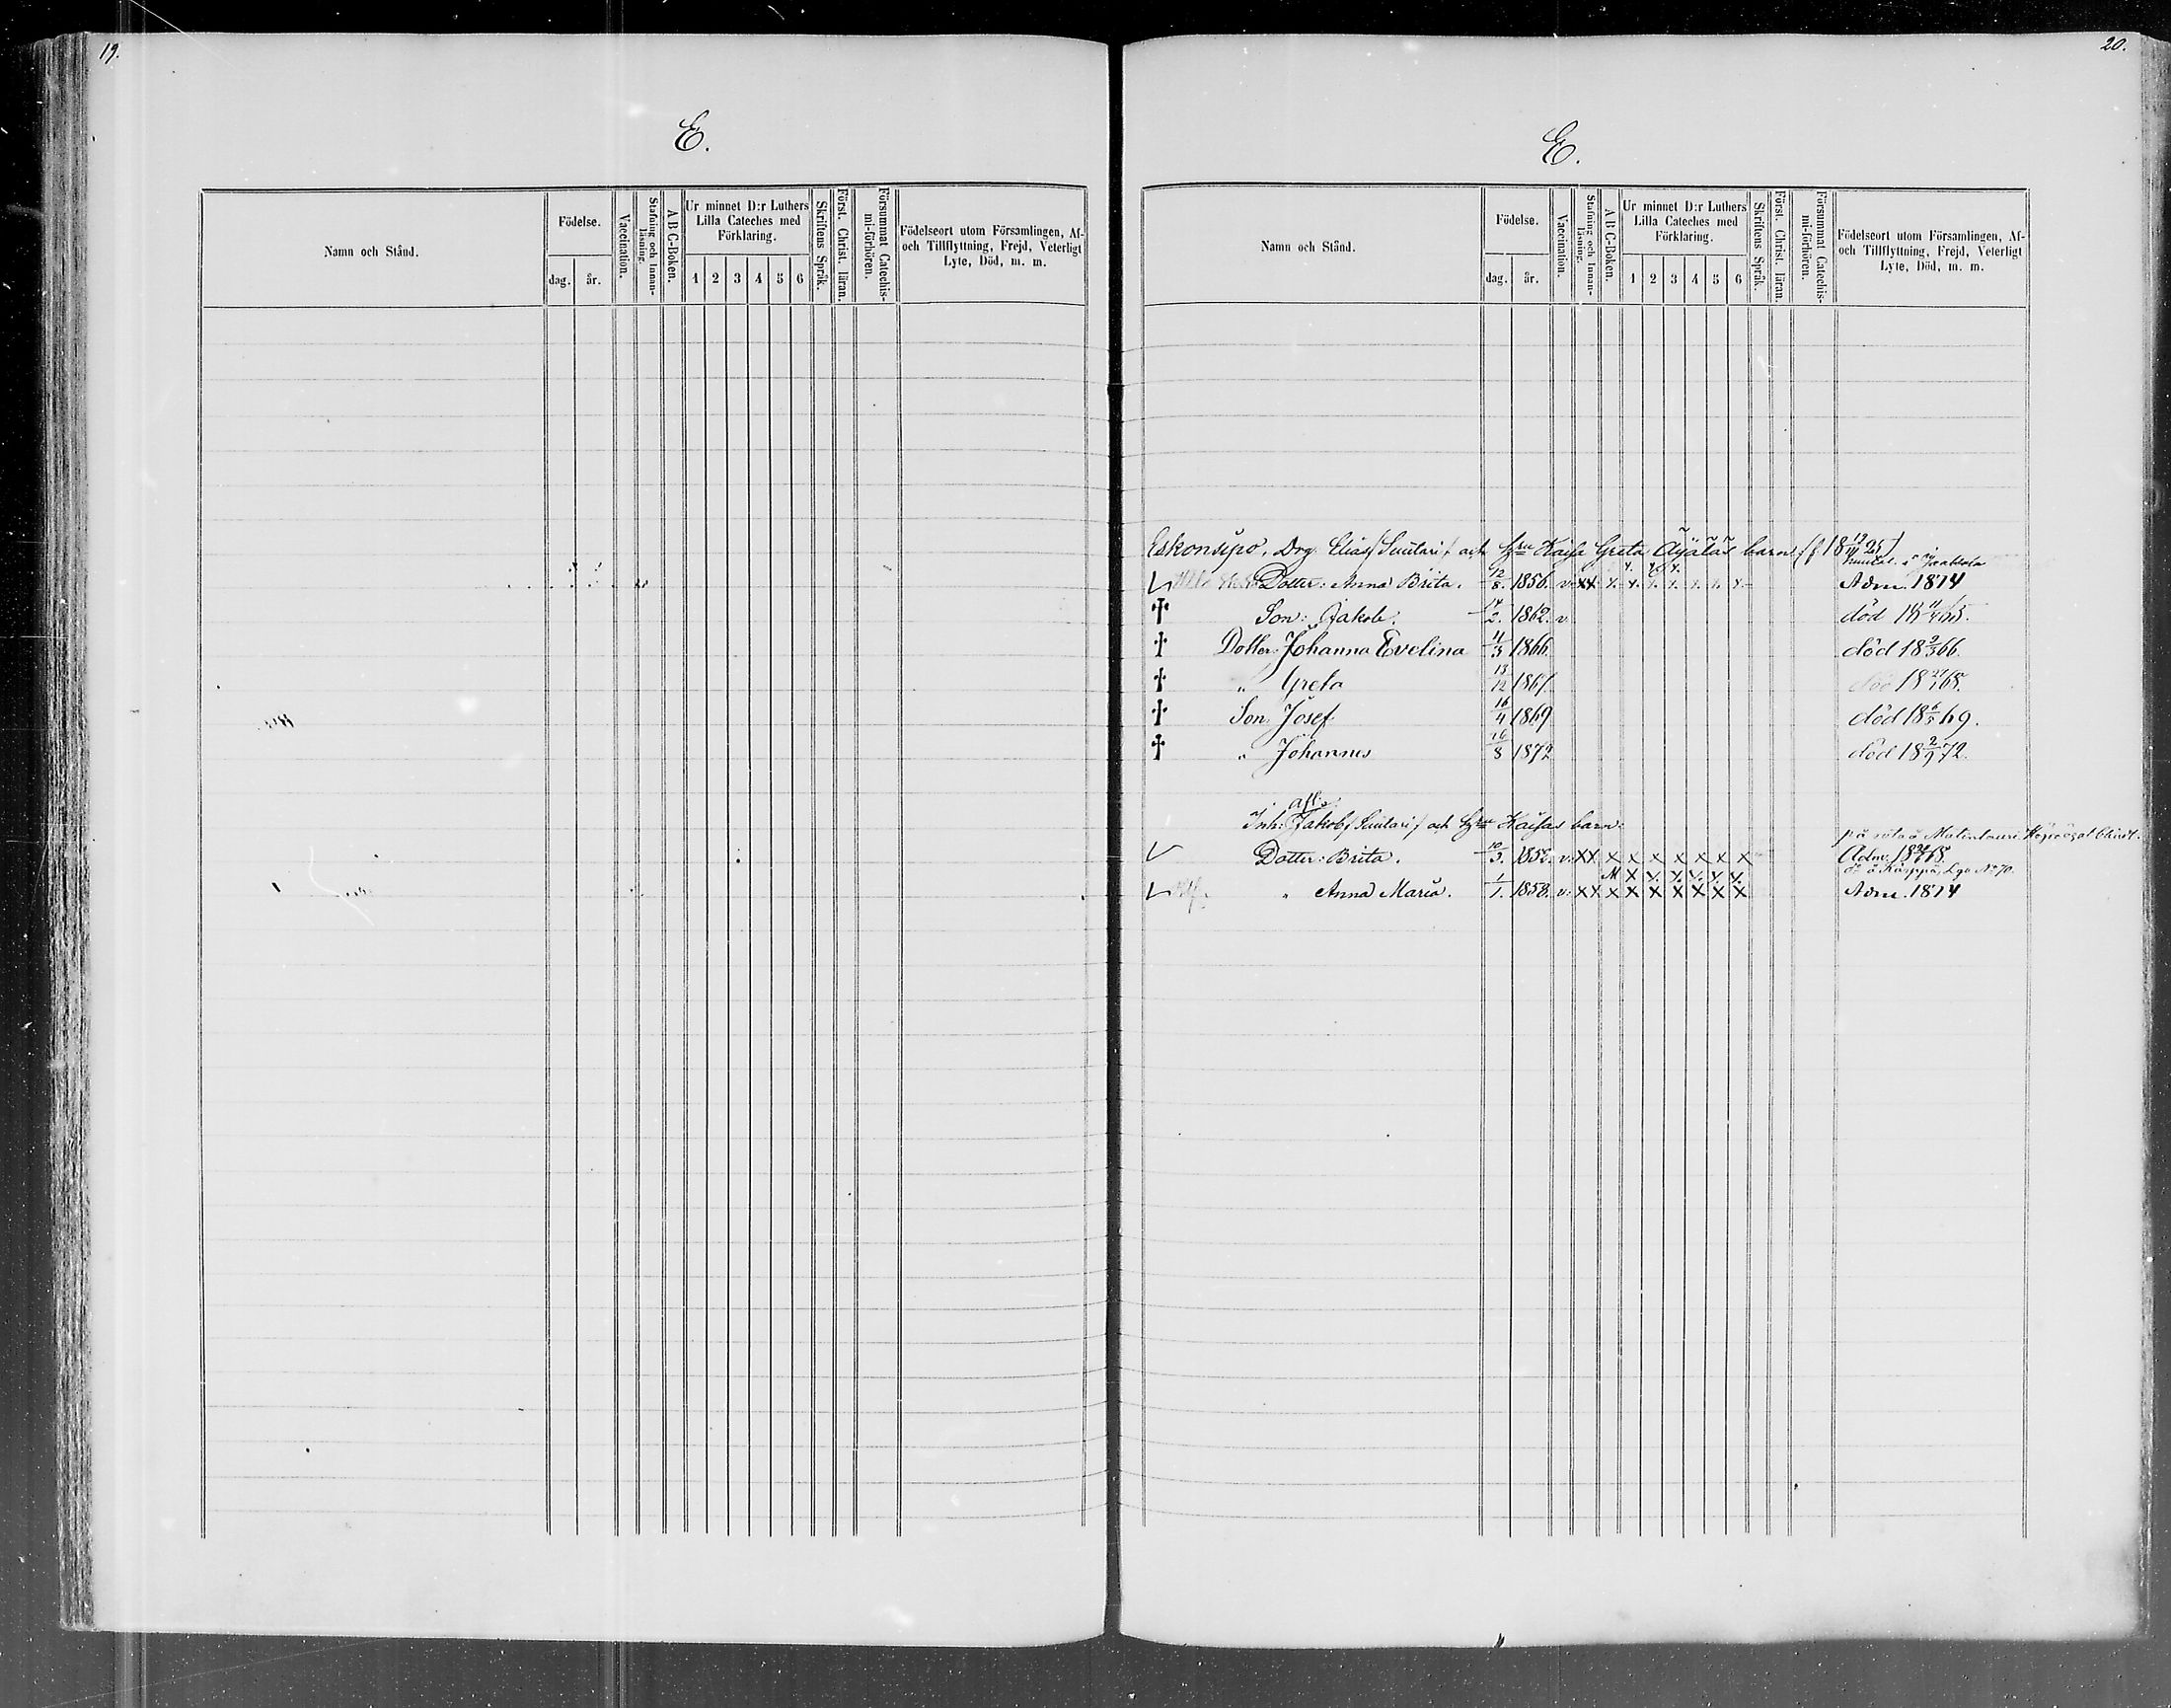 19.
E.
Namn och Stånd.
Födelse.
dag.
år.
Vaccination.
Stafning och Innan-läsning.
A B C-Boken.
Ur minnet D:r Luthers
Lilla Cateches med
Förklaring.
1 2 3 4 5 6
Skriftens Språk.
Först. Christ. läran.
Försummat Catechis-mi-förhören.
Födelseort utom Församlingen, Af-
och Tillflyttning, Frejd, Veterligt
Lyte, Död, m. m.
20.
E.
Namn och Stånd.
Födelse.
dag.
år.
Vaccination.
Stafning och Innan-läsning.
A B C-Boken.
Ur minnet D:r Luthers
Lilla Cateches med
Förklaring.
1 2 3 4 5 6
Skriftens Språk.
Först. Christ. läran.
Försummat Catechis-mi-förhören.
Födelseort utom Församlingen, Af-
och Tillflyttning, Frejd, Veterligt
Lyte, Död, m. m.
Eskonsipo, Drg. Elias Suutari och hru Kaisa Greta barn
Dotter: Anna Brita. 12/8. 1856. v. xx Adm. 1874
† Son: Jakob. 14/2. 1862. v. död
† Dotter: Johanna Evelina 11/3 1866 död 18 2/5 66.
† " Greta 13/12 1867
† Son Josef 16/4 1869 död 18 6/5 69.
† " Johannes 16/8 1872 död 18 2/9 72.
afl.
Inh. Jakob Suutari och hru Kaisas barn:
Dotter: Brita. 10/3. v. xx x x x x x x x Adm.
" Anna Maria. 1/1. 1858. v. xx x x x x x x x Adm. 1874